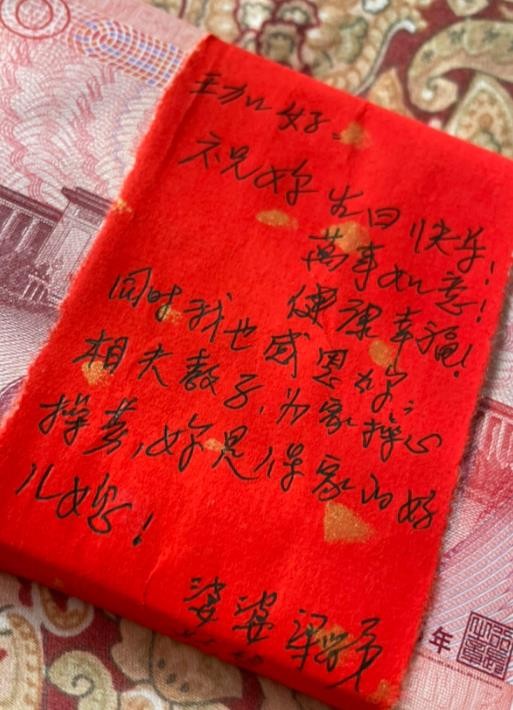 好。
祝妳生日快乐!
萬事如意!
健康幸福!
同时我也感恩妳,
相夫教子,为家操心
操劳,妳是家的好
儿媳!
婆婆 梁
年